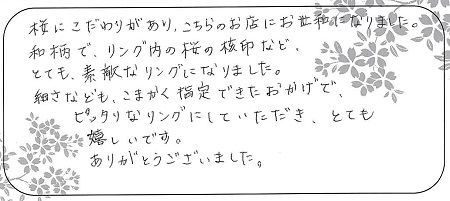 桜にこだわりがあり、こちらのお店にお世話になりました。
和柄で、リング内の桜の核印など、
とても、素敵なリングになりました。
細さなども、こまかく指定できたおかげで、
ピッタリなリングにしていただき、とても
嬉しいです。
ありがとうございました。